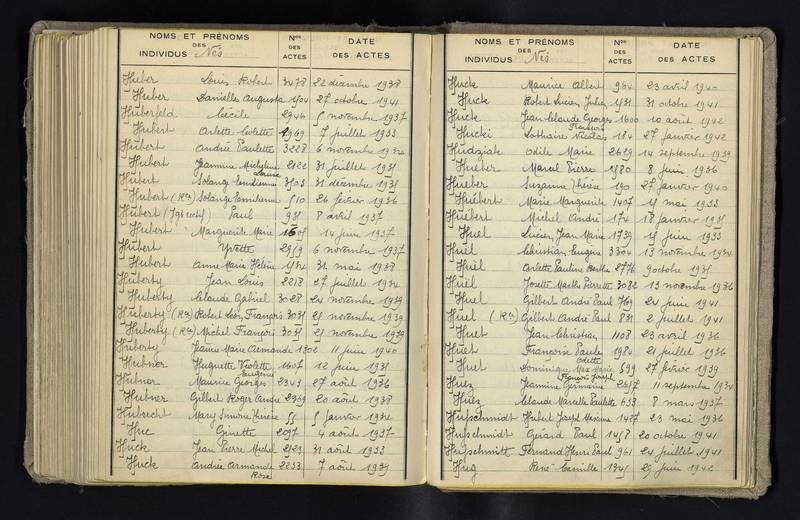 NOMS ET PRÉNOMS
DES
INDIVIDUS Nés
Nos
DES
ACTES
DATE
DES ACTES
Huber Louis Robert 3478 22 décembre 1938
Huber Danielle Augusta 27 octobre 1941
Huberfeld Cécile 2946 5 novembre 1937
Hubert Arlette Colette 1969 7 juillet 1933
Hubert André Paulette 3228 6 novembre 1932
Hubert Jeannine Micheline 2122 31 juillet 1931
Louise
Hubert Solange Emilienne 31 décembre 1935
Hubert (Ron) Solange Emilienne 510 26 février 1936
Hubert Paul 931 8 avril 1937
Hubert Marguerite Marie 14 juin 1937
Hubert Yvette 6 novembre 1937
Hubert Anne Marie Hélène 31 mai 1938
Huberty Jean Louis 2218 27 juillet 1932
Huberty Claude Gabriel 3028 24 novembre 1939
Huberty (Ron) Robert Léon François 3031 25 novembre 1939
Huberty (Ron) Michel François 3031 25 novembre 1939
Huberty Jeanne Marie Armande 1302 11 juin 1940
Hubner Huguette Violette 1607 12 juin 1931
Eugénie
Hubner Maurice Georges 2343 27 août 1936
Hubner Gilbert Roger André 2369 20 août 1938
Hubrecht Mary Simone Thérèse 55 5 janvier 1932
Huc Ginette 2097 4 août 1937
Huck Jean Pierre Michel 2423 31 août 1933
Huck Andrée Armande 2233 7 août 1939
Rose
NOMS ET PRÉNOMS
DES
INDIVIDUS Nés
Nos
DES
ACTES
DATE
DES ACTES
Huck Maurice Albert 964 23 avril 1940
Huck Robert Lucien Jules 31 octobre 1941
Huck Jean Claude Georges 1600 10 août 1942
François
Hucki Lothaire Nicolas 184 27 janvier 1942
Hudziak Odile Marie 2629 14 septembre 1939
Hueber Marcel Pierre 1580 8 juin 1936
Hueber Suzanne Thérèse 190 27 janvier 1940
Huébert Marie Marguerite 1407 15 mai 1933
Huébert Michel André 174 18 janvier 1935
Huel Lucien Jean Marie 1739 15 juin 1933
Huël Christian Eugène 3304 13 novembre 1932
Huël Arlette Pauline Berthe 2776 9 octobre 1935
Huel Josette Marthe Pierrette 3082 13 novembre 1936
Huel Gilbert André Paul 769 24 juin 1941
Huel (Ron) Gilbert André Paul 831 2 juillet 1941
Huet Jean Christian 1108 23 avril 1936
Huet Françoise Paule 1984 21 juillet 1936
Odette
Huet Dominique Max Marie 599 27 février 1939
François Joseph
Huez Jeannine Germaine 2617 11 septembre 1932
Huez Claude Marcelle Paulette 633 8 mars 1937
Hufschmidt Hubert Joseph Maxime 1427 23 mai 1936
Hufschmidt Gérard Paul 1458 20 octobre 1941
Hufschmitt Fernand Henri Paul 961 24 juillet 1941
Hug René Camille 1345 29 juin 1942